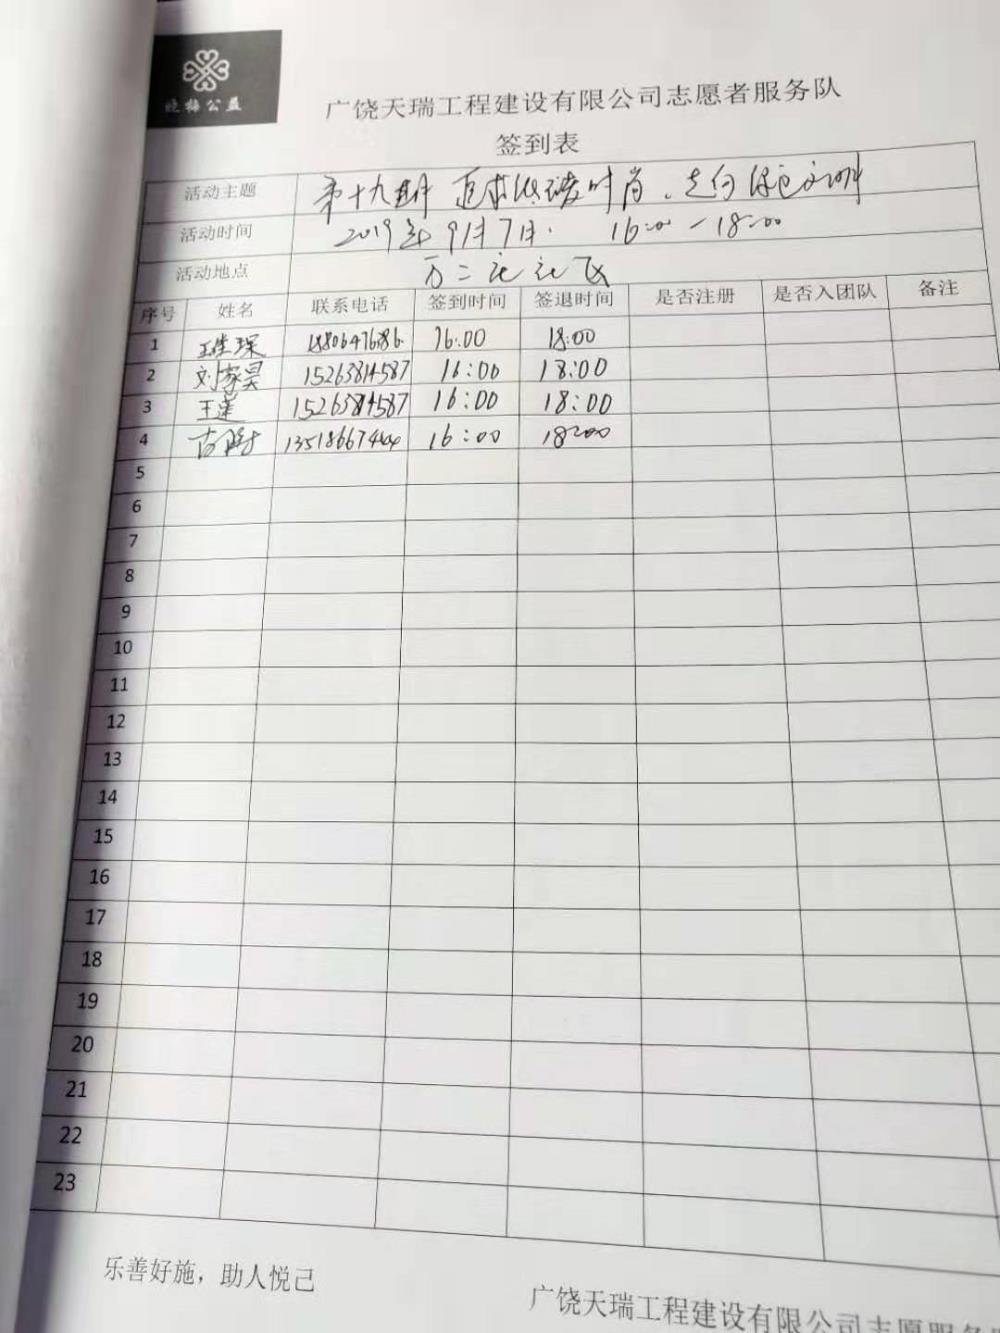 晓梅公益
广饶天瑞工程建设有限公司志愿者服务队
签到表
活动主题 第十九期 追求低碳时尚、走向绿色文明
活动时间 2019年9月7日. 16:00-18:00
活动地点
序号 姓名 联系电话 签到时间 签退时间 是否注册 是否入团队 备注
1 16:00 18:00
2 刘家昊 15263814587 16:00 18:00
3 王莲 15263814587 16:00 18:00
4 13518667444 16:00 18:00
5
6
7
8
9
10
11
12
13
14
15
16
17
18
19
20
21
22
23
乐善好施，助人悦己
广饶天瑞工程建设有限公司志愿服务